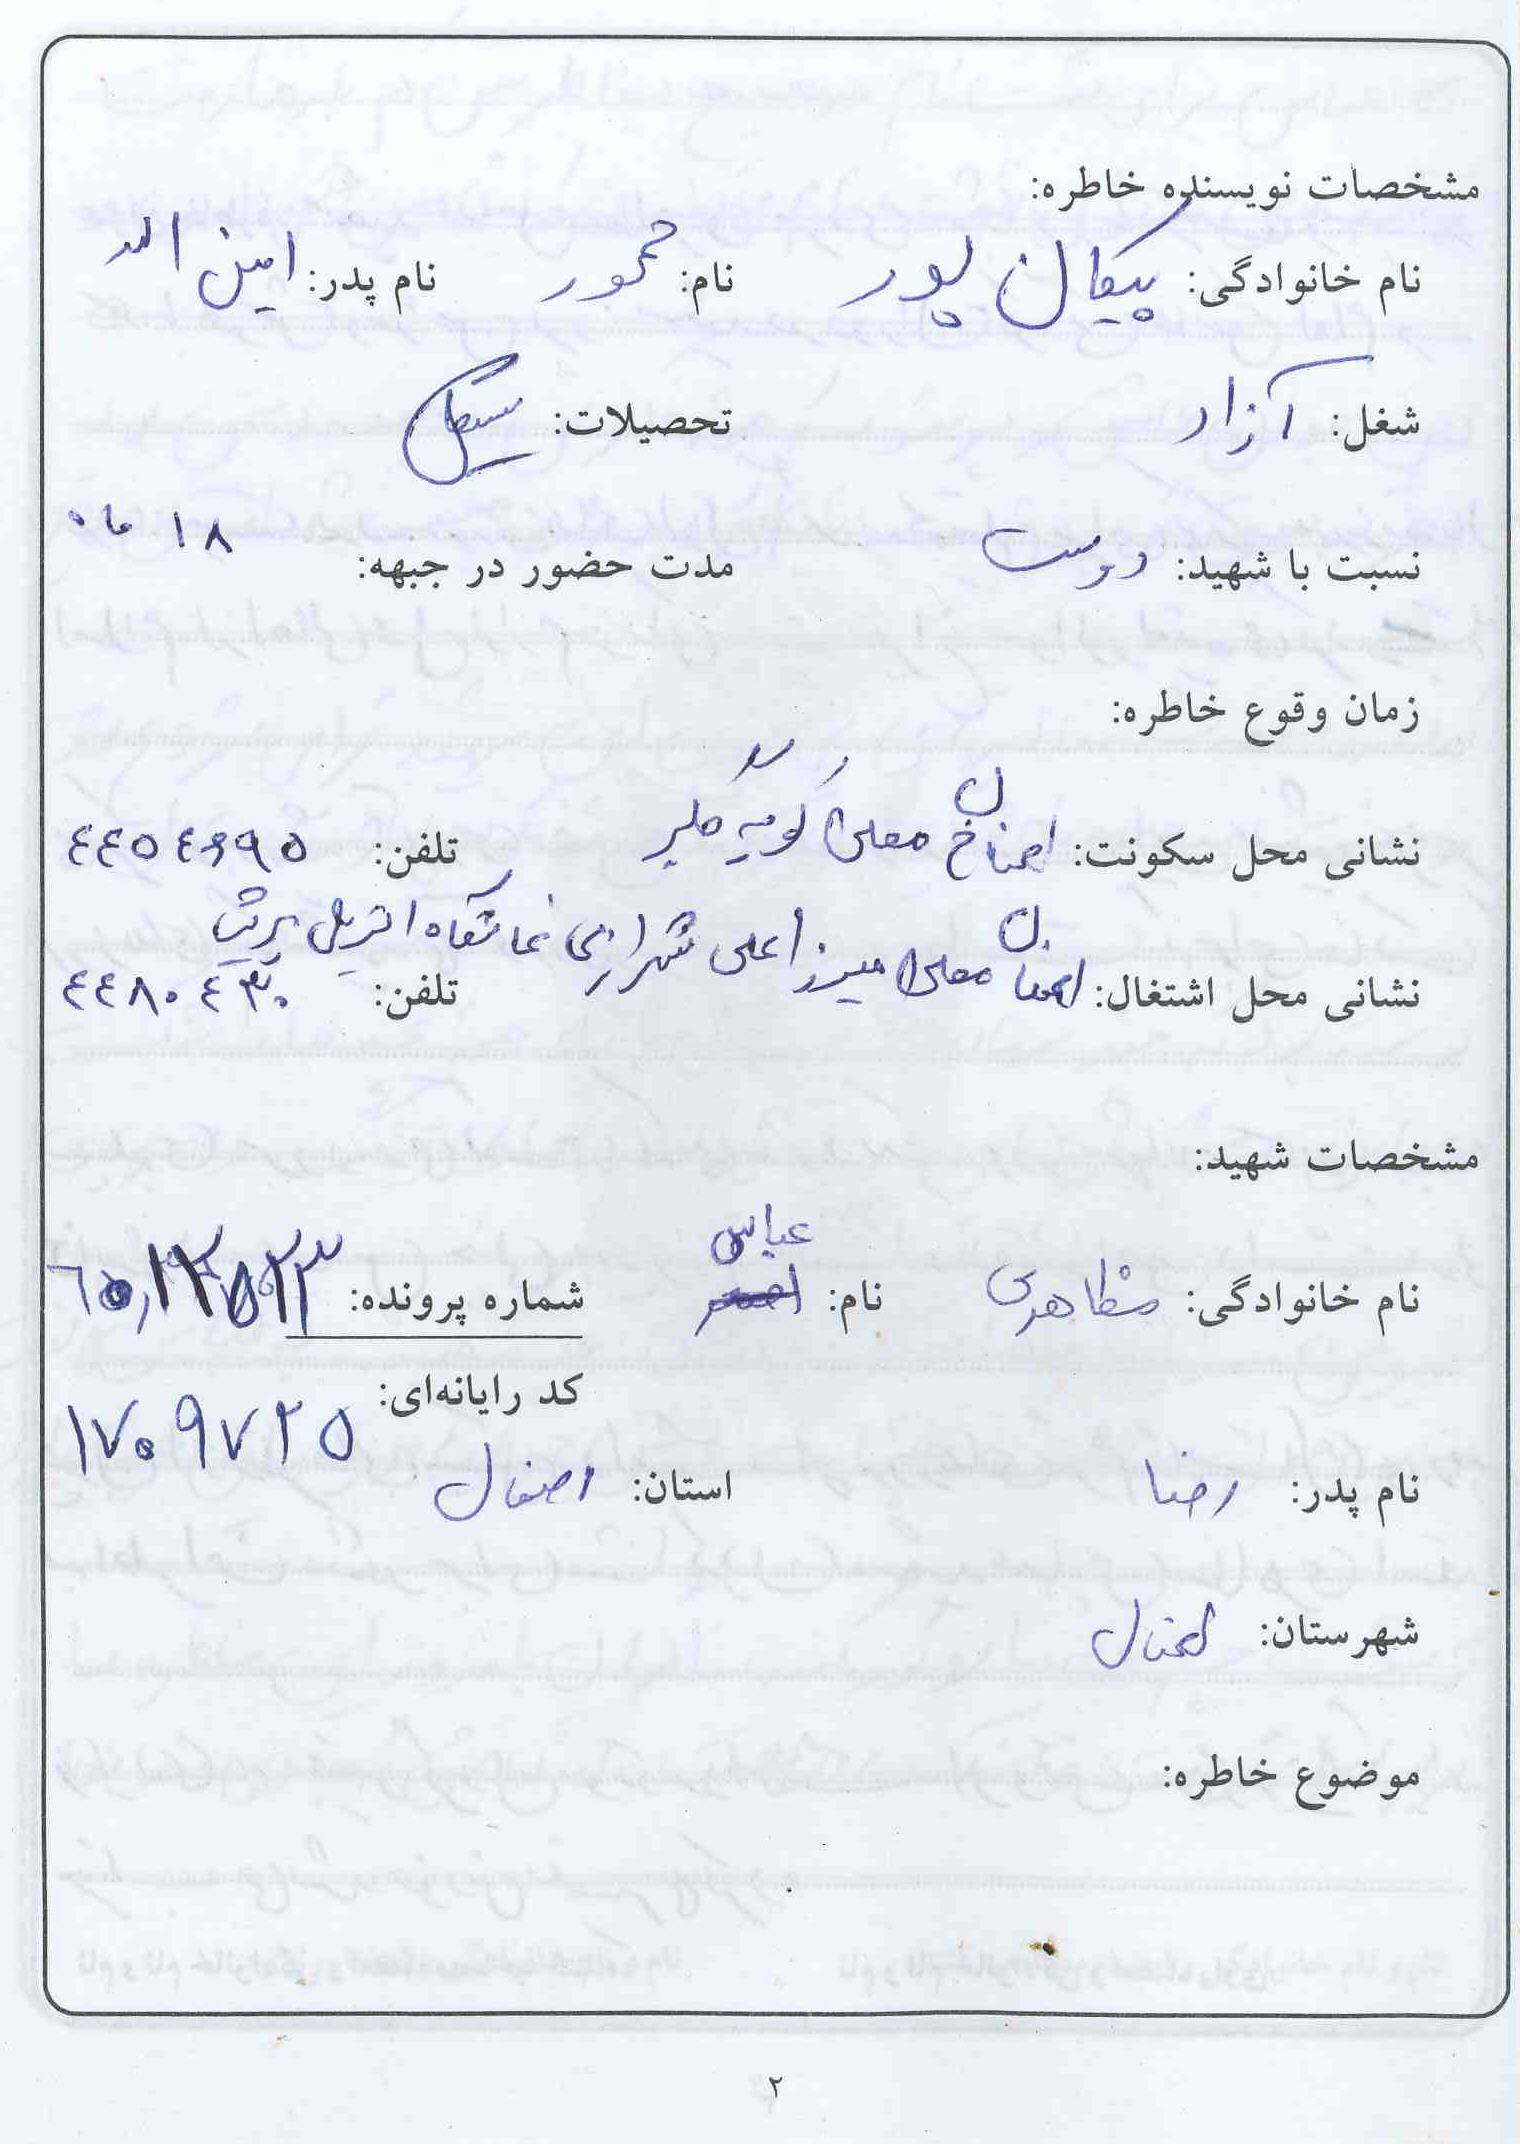 مشخصات نویسنده خاطره:
نام خانوادگی: پیکان پور نام: محمود نام پدر: امین الله
شغل: آزاد تحصیلات: سیکل
نسبت با شهید: دوست مدت حضور در جبهه: ۱۸ ماه
زمان وقوع خاطره:
نشانی محل سکونت: اصفهان خ معلم کوچه تلفن: ٤٤٥٤٦٩٥
نشانی محل اشتغال: اصفهان معلم میرزا علی شیرازی نمایشگاه اتومبیل تلفن: ٤٤٨٠٤٣٠
مشخصات شهید:
نام خانوادگی: مظاهری نام: عباس شماره پرونده:
کد رایانه‌ای: ۱۷۰۹۷۲۵
نام پدر: رضا استان: اصفهان
شهرستان: اصفهان
موضوع خاطره:
۲